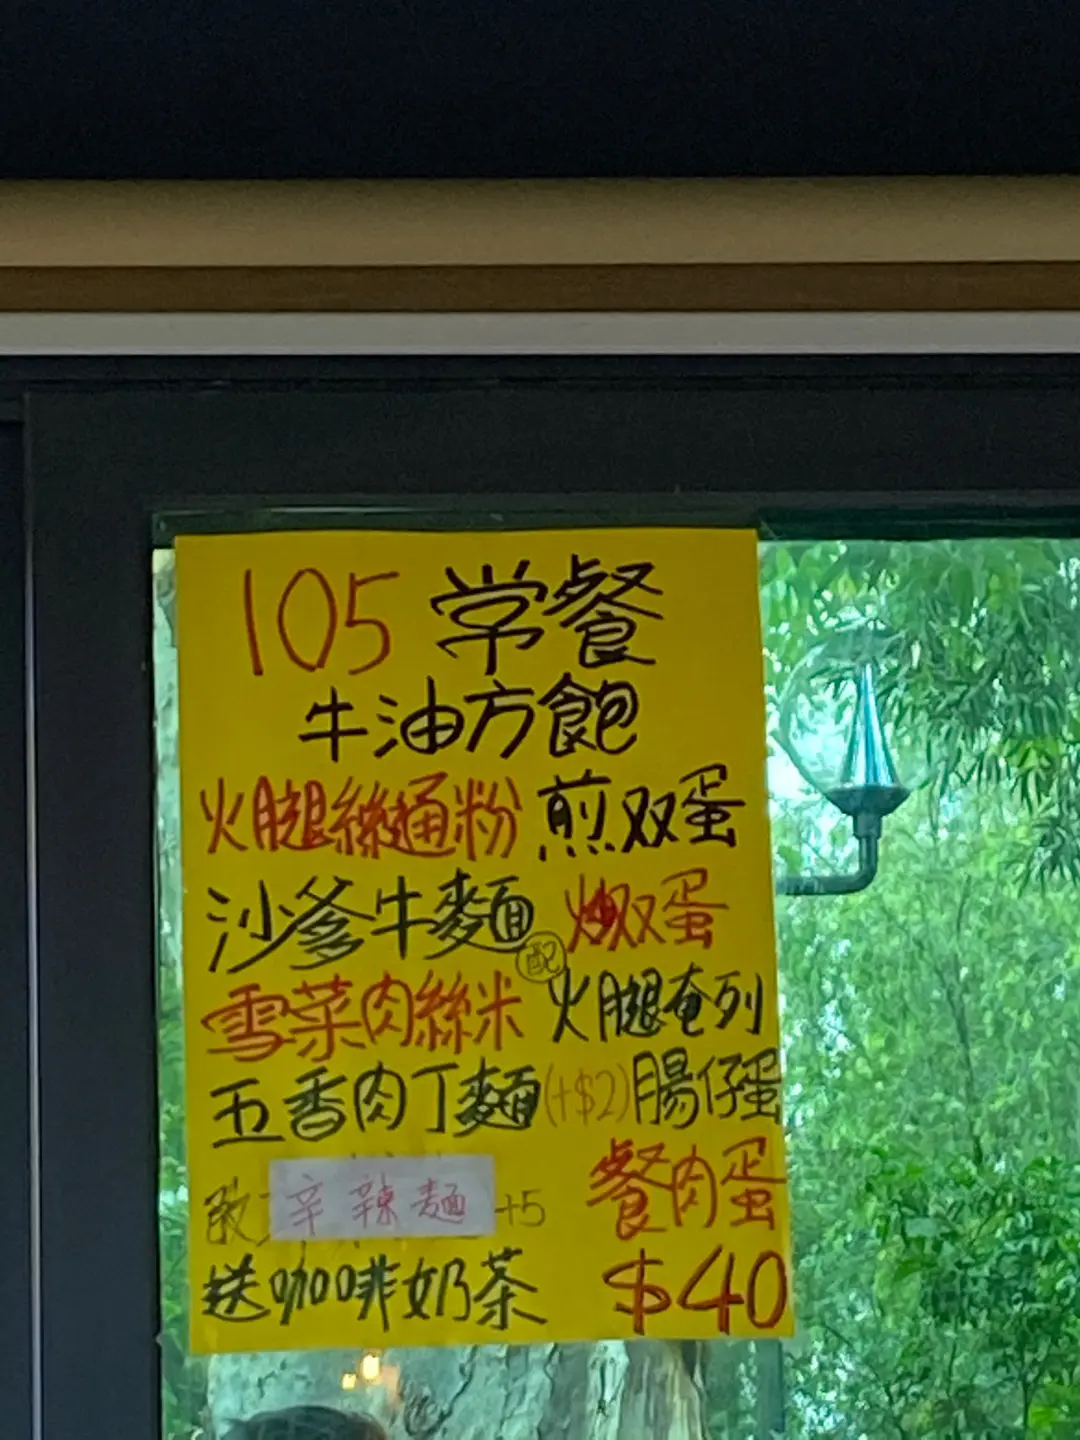 105 常餐
牛油方飽
火腿絲通粉 煎双蛋
沙爹牛麵 炒双蛋
配
雪菜肉絲米 火腿奄列
五香肉丁麵(+$2)腸仔蛋
餐肉蛋
改 辛辣麵 +5
送咖啡奶茶 $40